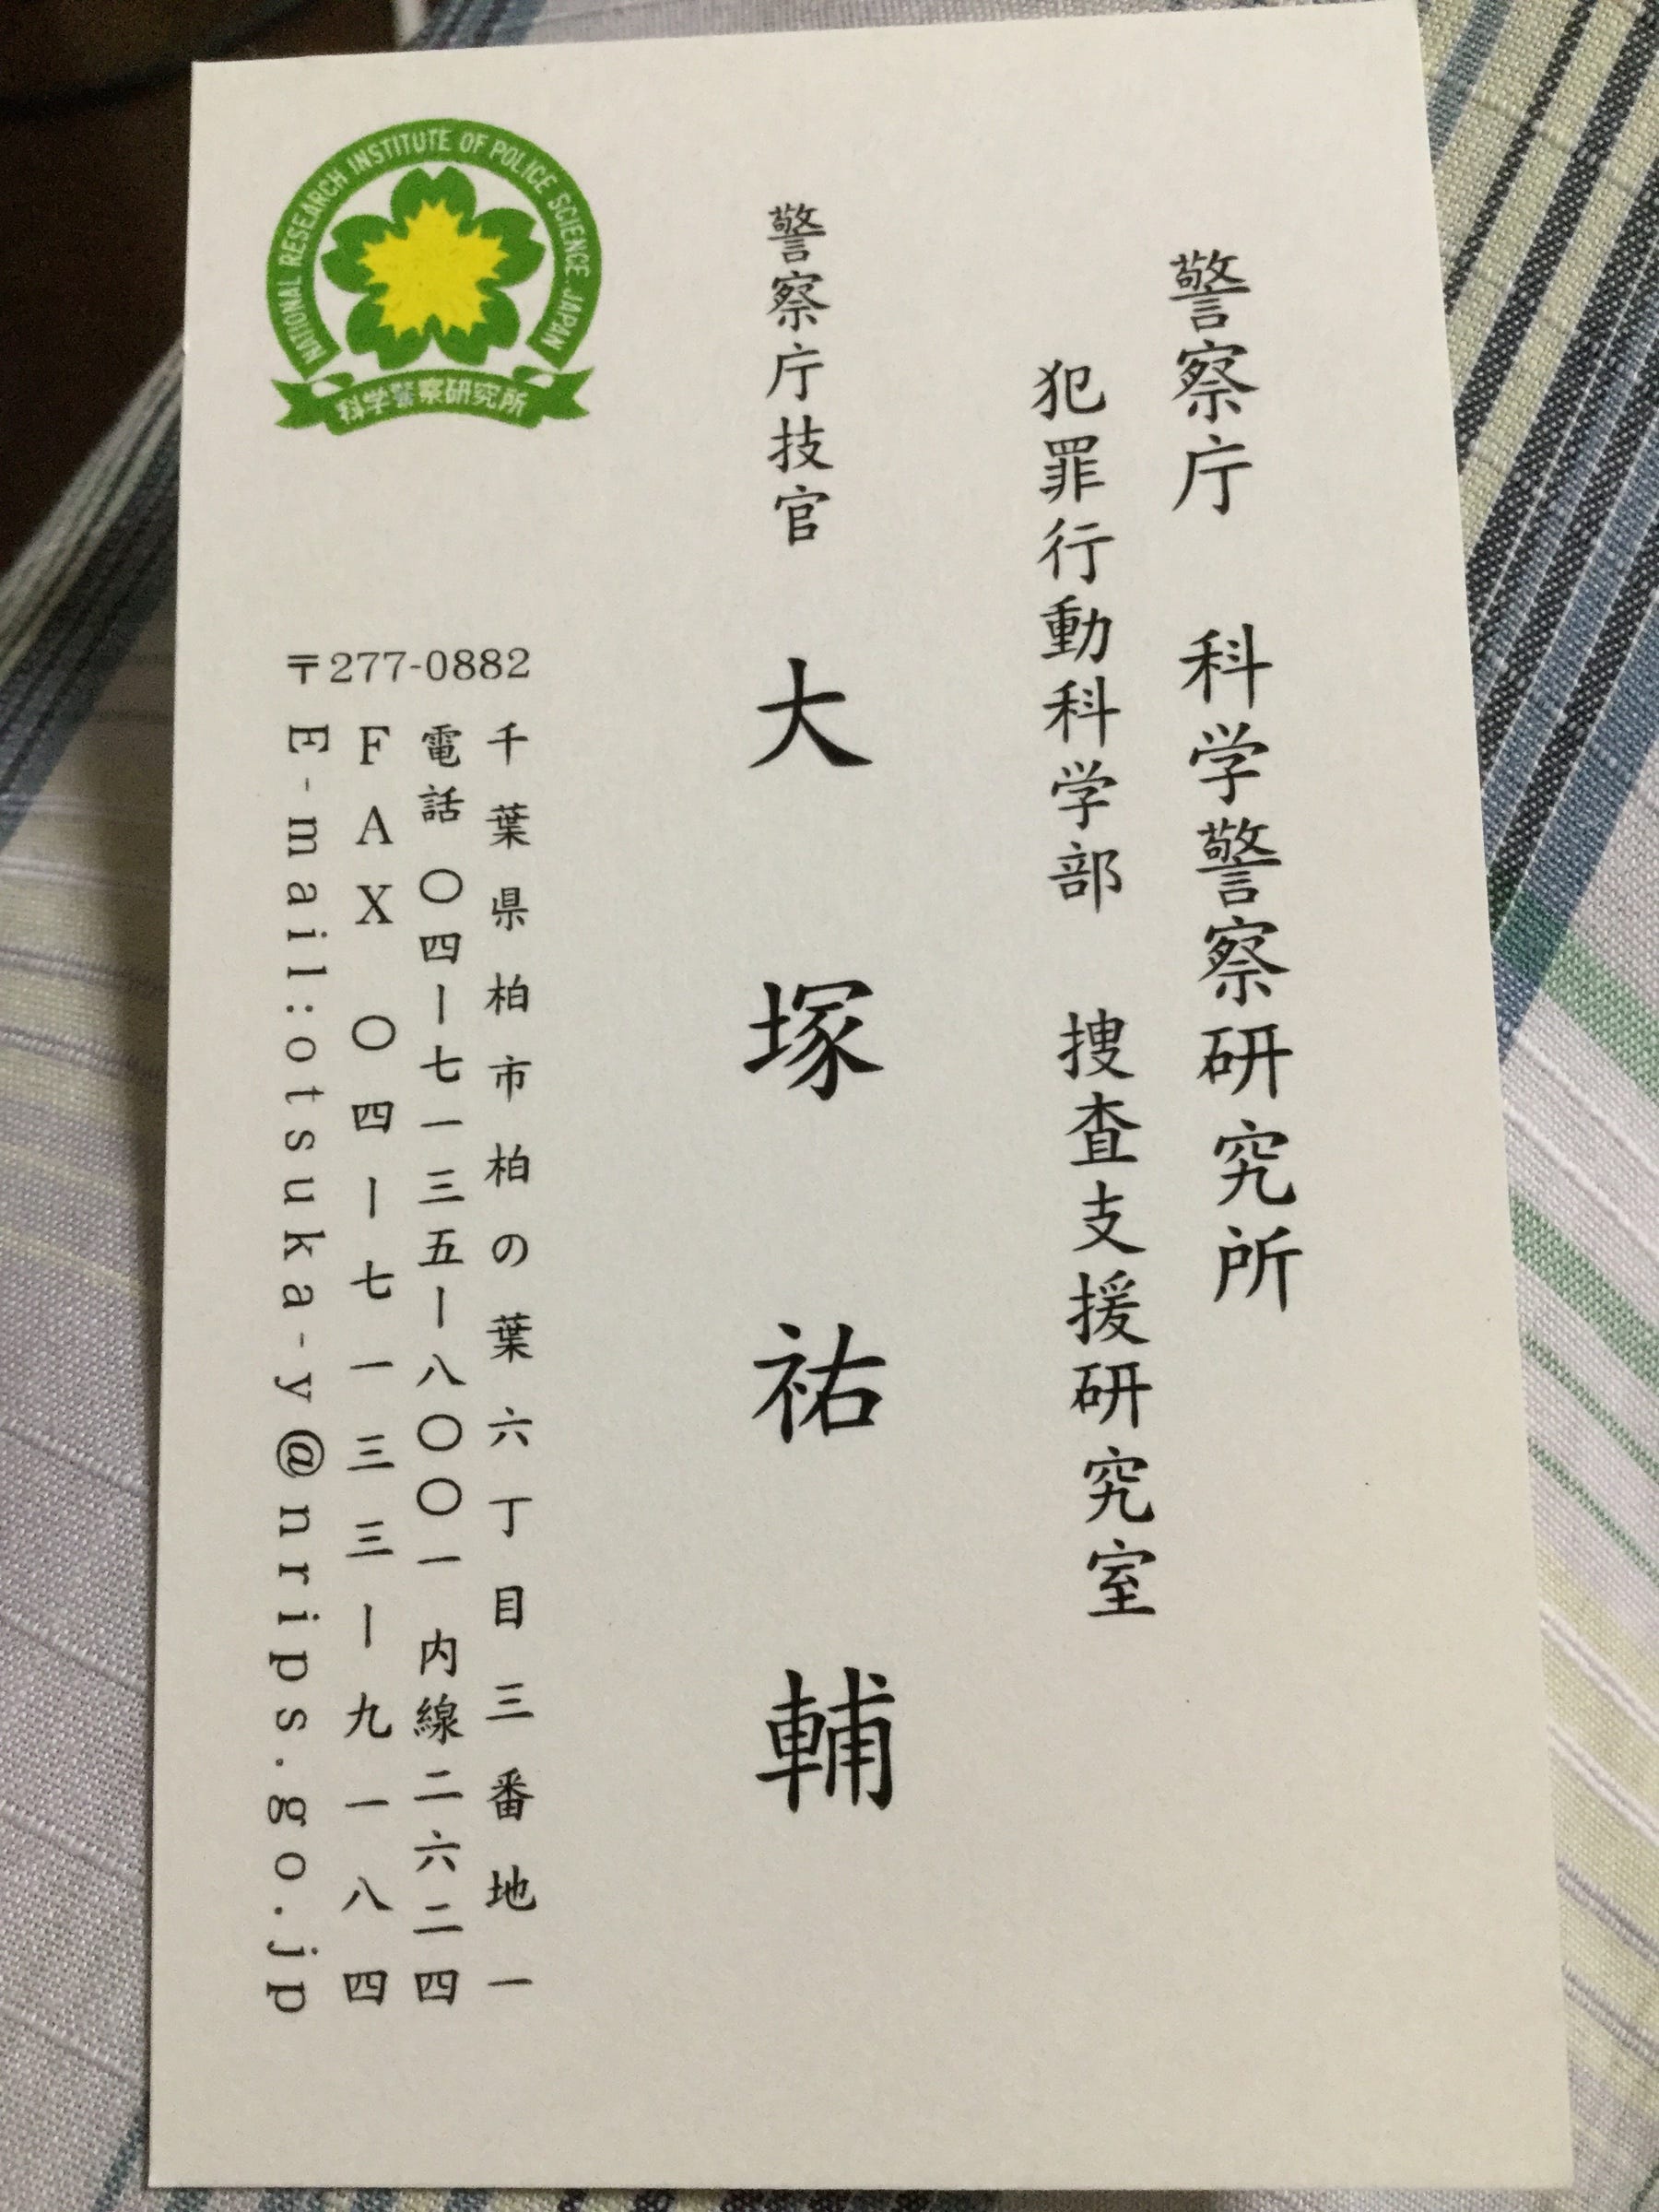 警察庁　科学警察研究所
犯罪行動科学部　捜査支援研究室
警察庁技官　大塚祐輔
NATIONAL RESEARCH INSTITUTE OF POLICE SCIENCE. JAPAN
科学警察研究所
〒277-0882
千葉県柏市柏の葉六丁目三番地一
電話〇四ー七一三五ー八〇〇一　内線二六二四
FAX　〇四ー七一三三ー九一八四
E-mail:otsuka-y@nrips.go.jp